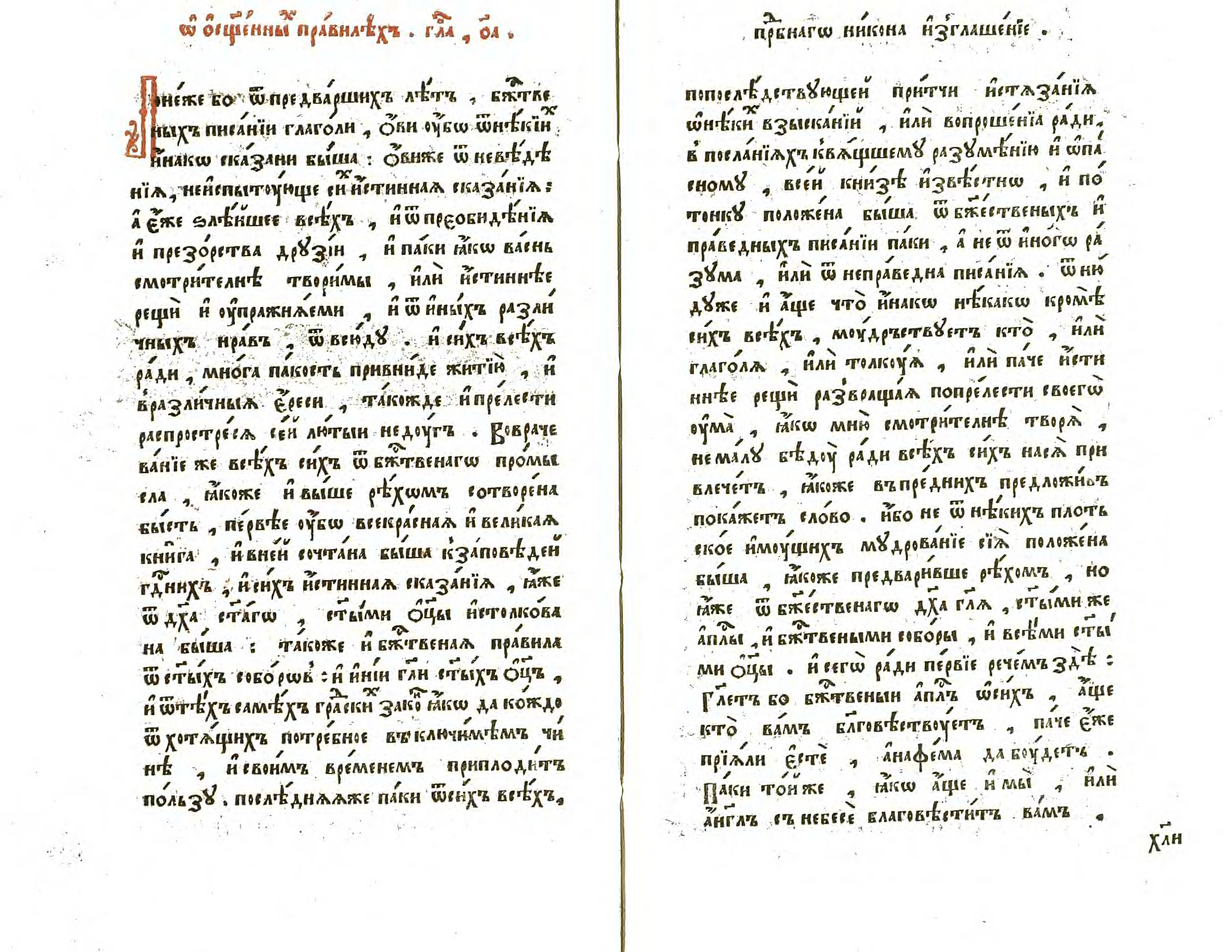 ѿ ѻсщ҃е́нныⷯ пра́вилѣхъ . гла̀ , ѻ҃а .
Поне́же бо ѿ предва́ршихъ лѣ́тъ , бж҃тве
ныхъ писа́нїи глаго́ли , ѻ҆́ви ᲂу҆́бѡ ѿ нѣ́кїиⷯ
и҆́накѡ ска́зани бы́ша : ѻ҆́виже ѿ невѣ́дѣ
нїѧ , неи҆спытᲂу́юще сиⷯ и҆́стинная ска́занїѧ :
а҆ є҆́же ѕлѣ́йшее всѣ́хъ , и҆ ѿ преѻбидѣ́нїѧ
и҆ презо́рства дрꙋзі́и , и҆ па́ки ꙗ҆́кѡ ва́снь
смотри́телнѣ твори́мы , и҆лѝ и҆́стиннѣе
рещѝ и҆ ᲂу҆пражнѧ́еми , и҆ ѿ и҆ны́хъ разли
чныхъ нра́въ , ѿвсю́дꙋ . и҆ си́хъ всѣ́хъ
ра́ди , мно́га па́кость привни́де житїю̀ , и҆
в̾разли́чныѧ є҆́реси , та́кожде и҆ пре́лести
распростре́сѧ се́й лю́тыи недꙋ́гъ . Вовраче
ва́нїе же всѣ́хъ си́хъ ѿ бж҃твенагѡ про́мы
сла , ꙗ҆́коже и҆ вы́ше рѣ́хѡмъ сотворе́на
бы́сть , пе́рвѣе ᲂу҆́бѡ всекра́сная и҆ вели́каѧ
кни́га , и҆ в не́й сочта́на бы́ша к̾ за́повѣдей
гдⷭ҇нихъ , и҆ си́хъ и҆́стинная ска́занїѧ , ꙗ҆́же
ѿ дх҃а ст҃а́гѡ , ст҃ы́ми ѻ҆ц҃ы̀ и҆столко́ва
на бы́ша : та́коже и҆ бж҃твеная пра́вила
ѿ ст҃ы́хъ собо́рѡв̾ : и҆ и҆ні́и гл҃и ст҃ы́хъ ѻ҆ц҃ъ ,
и҆ ѿ тѣ́хъ самѣ́хъ гра́скиⷯ зако́ ꙗ҆́кѡ да ко́ждо
ѿ хотѧ́щихъ потре́бное въ ключи́мѣмъ чи
нѣ , и҆ свои́мъ вре́менемъ приплоди́тъ
по́льзꙋ . послѣ́днѧѧже па́ки ѿ си́хъ всѣ́хъ ,
прⷣбнагѡ ни́кона и҆зглаше́нїе .
попослѣ́дствꙋющей при́тчи и҆стѧза́нїѧ
ѡ нѣ́киⷯ взыска́нїй , и҆лѝ вопроше́нїѧ ра́ди ,
в̾ посла́нїѧхъ к вѧ́щшемꙋ разꙋмѣ́нїю и҆ ѡ҆па́
сномꙋ , все́й кни́зѣ и҆звѣ́стнѡ , и҆ по́
тонкꙋ положе́на бы́ша ѿ бж҃ественыхъ и҆
пра́ведныхъ писа́нїи па́ки , а҆ не ѿ и҆но́гѡ ра́
зꙋма , и҆лѝ ѿ непра́ведна писа́нїѧ . ѿ ню́
дꙋже и҆ а҆́ще что̀ и҆́накѡ нѣ́какѡ кромѣ̀
си́хъ всѣ́хъ , мᲂу́дръствꙋетъ кто̀ , и҆лѝ
глаго́лѧ , и҆лѝ толкꙋ́ѧ , и҆лѝ па́че и҆́сти
ннѣе рещѝ развраща́ѧ попре́лести своегѡ̀
ᲂу҆ма̀ , ꙗ҆́кѡ мню̀ смотри́телнѣ творѧ̀ ,
не ма́лꙋ бѣдᲂу̀ ра́ди всѣ́хъ си́хъ на сѧ̀ при
влече́тъ , ꙗ҆́коже въ пре́днихъ предложи́въ
пока́жетъ сло́во . и҆́бо не ѿ нѣ́кихъ пло́ть
ское и҆мᲂу́щихъ мꙋдрова́нїе сїѧ̀ положе́на
бы́ша , ꙗ҆́коже предвари́вше рѣ́хомъ , но
ꙗ҆́же ѿ бж҃е́ственагѡ дх҃а гл҃ѧ , ст҃ы́ми же
а҆пⷭ҇лы̀ , и҆ бж҃твеными собо́ры , и҆ всѣ́ми ст҃ы́
ми ѻ҆ц҃ы̀ . и҆ сегѡ̀ ра́ди пе́рвїе рече́мъ здѣ̀ :
Гл҃етъ бо бж҃твеныи а҆пⷭ҇лъ ѡ҆ си́хъ , а҆́ще
кто̀ ва́мъ бл҃говѣствᲂу́етъ , па́че є҆́же
прїѧ́ли є҆стѐ , а҆на́фема да бᲂу́детъ .
Па́ки то́йже , ꙗ҆́кѡ а҆́ще и҆ мы̀ , и҆лѝ
а҆́нг҃лъ съ небесѐ благовѣсти́тъ ва́мъ .
хл҃и